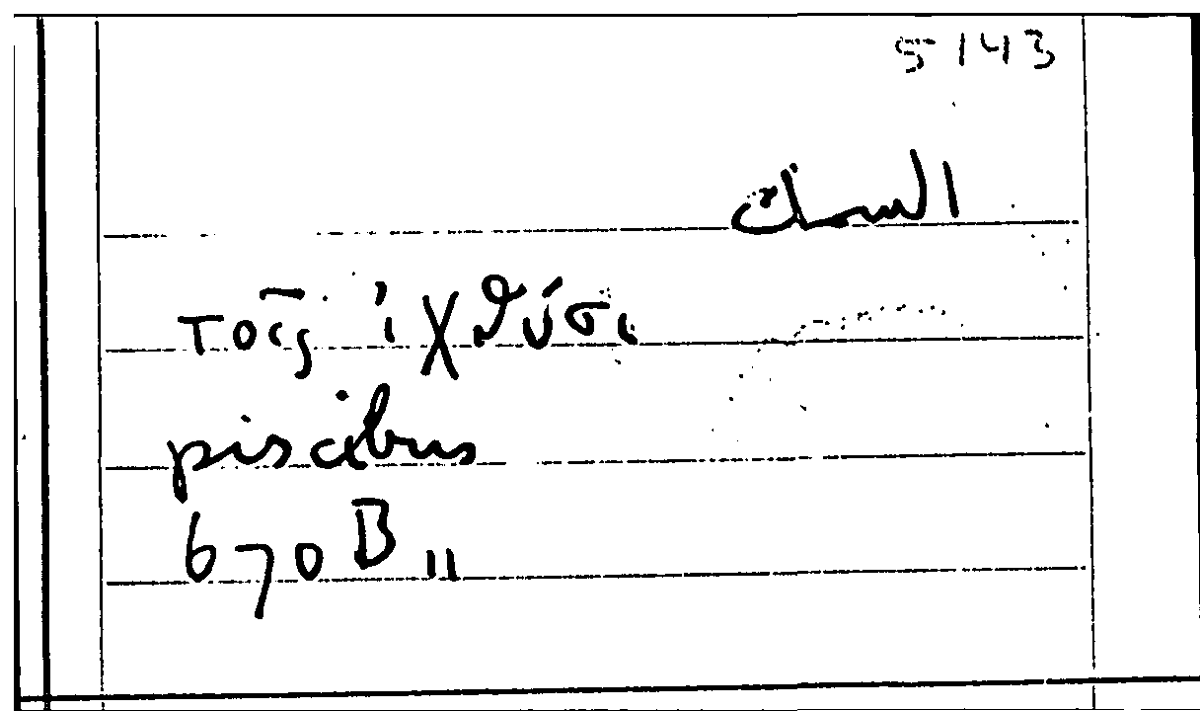 5143
السمك
τοῖς ἰχθύσι
piscibus
670 B 11